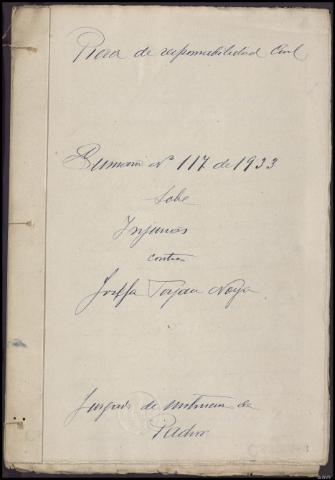 Pieza de responsabilidad Civil
Sumario Nº 117 de 1933
sobre
Injurias
contra
Josefa Noya
Juzgado de instruccion de
Padron